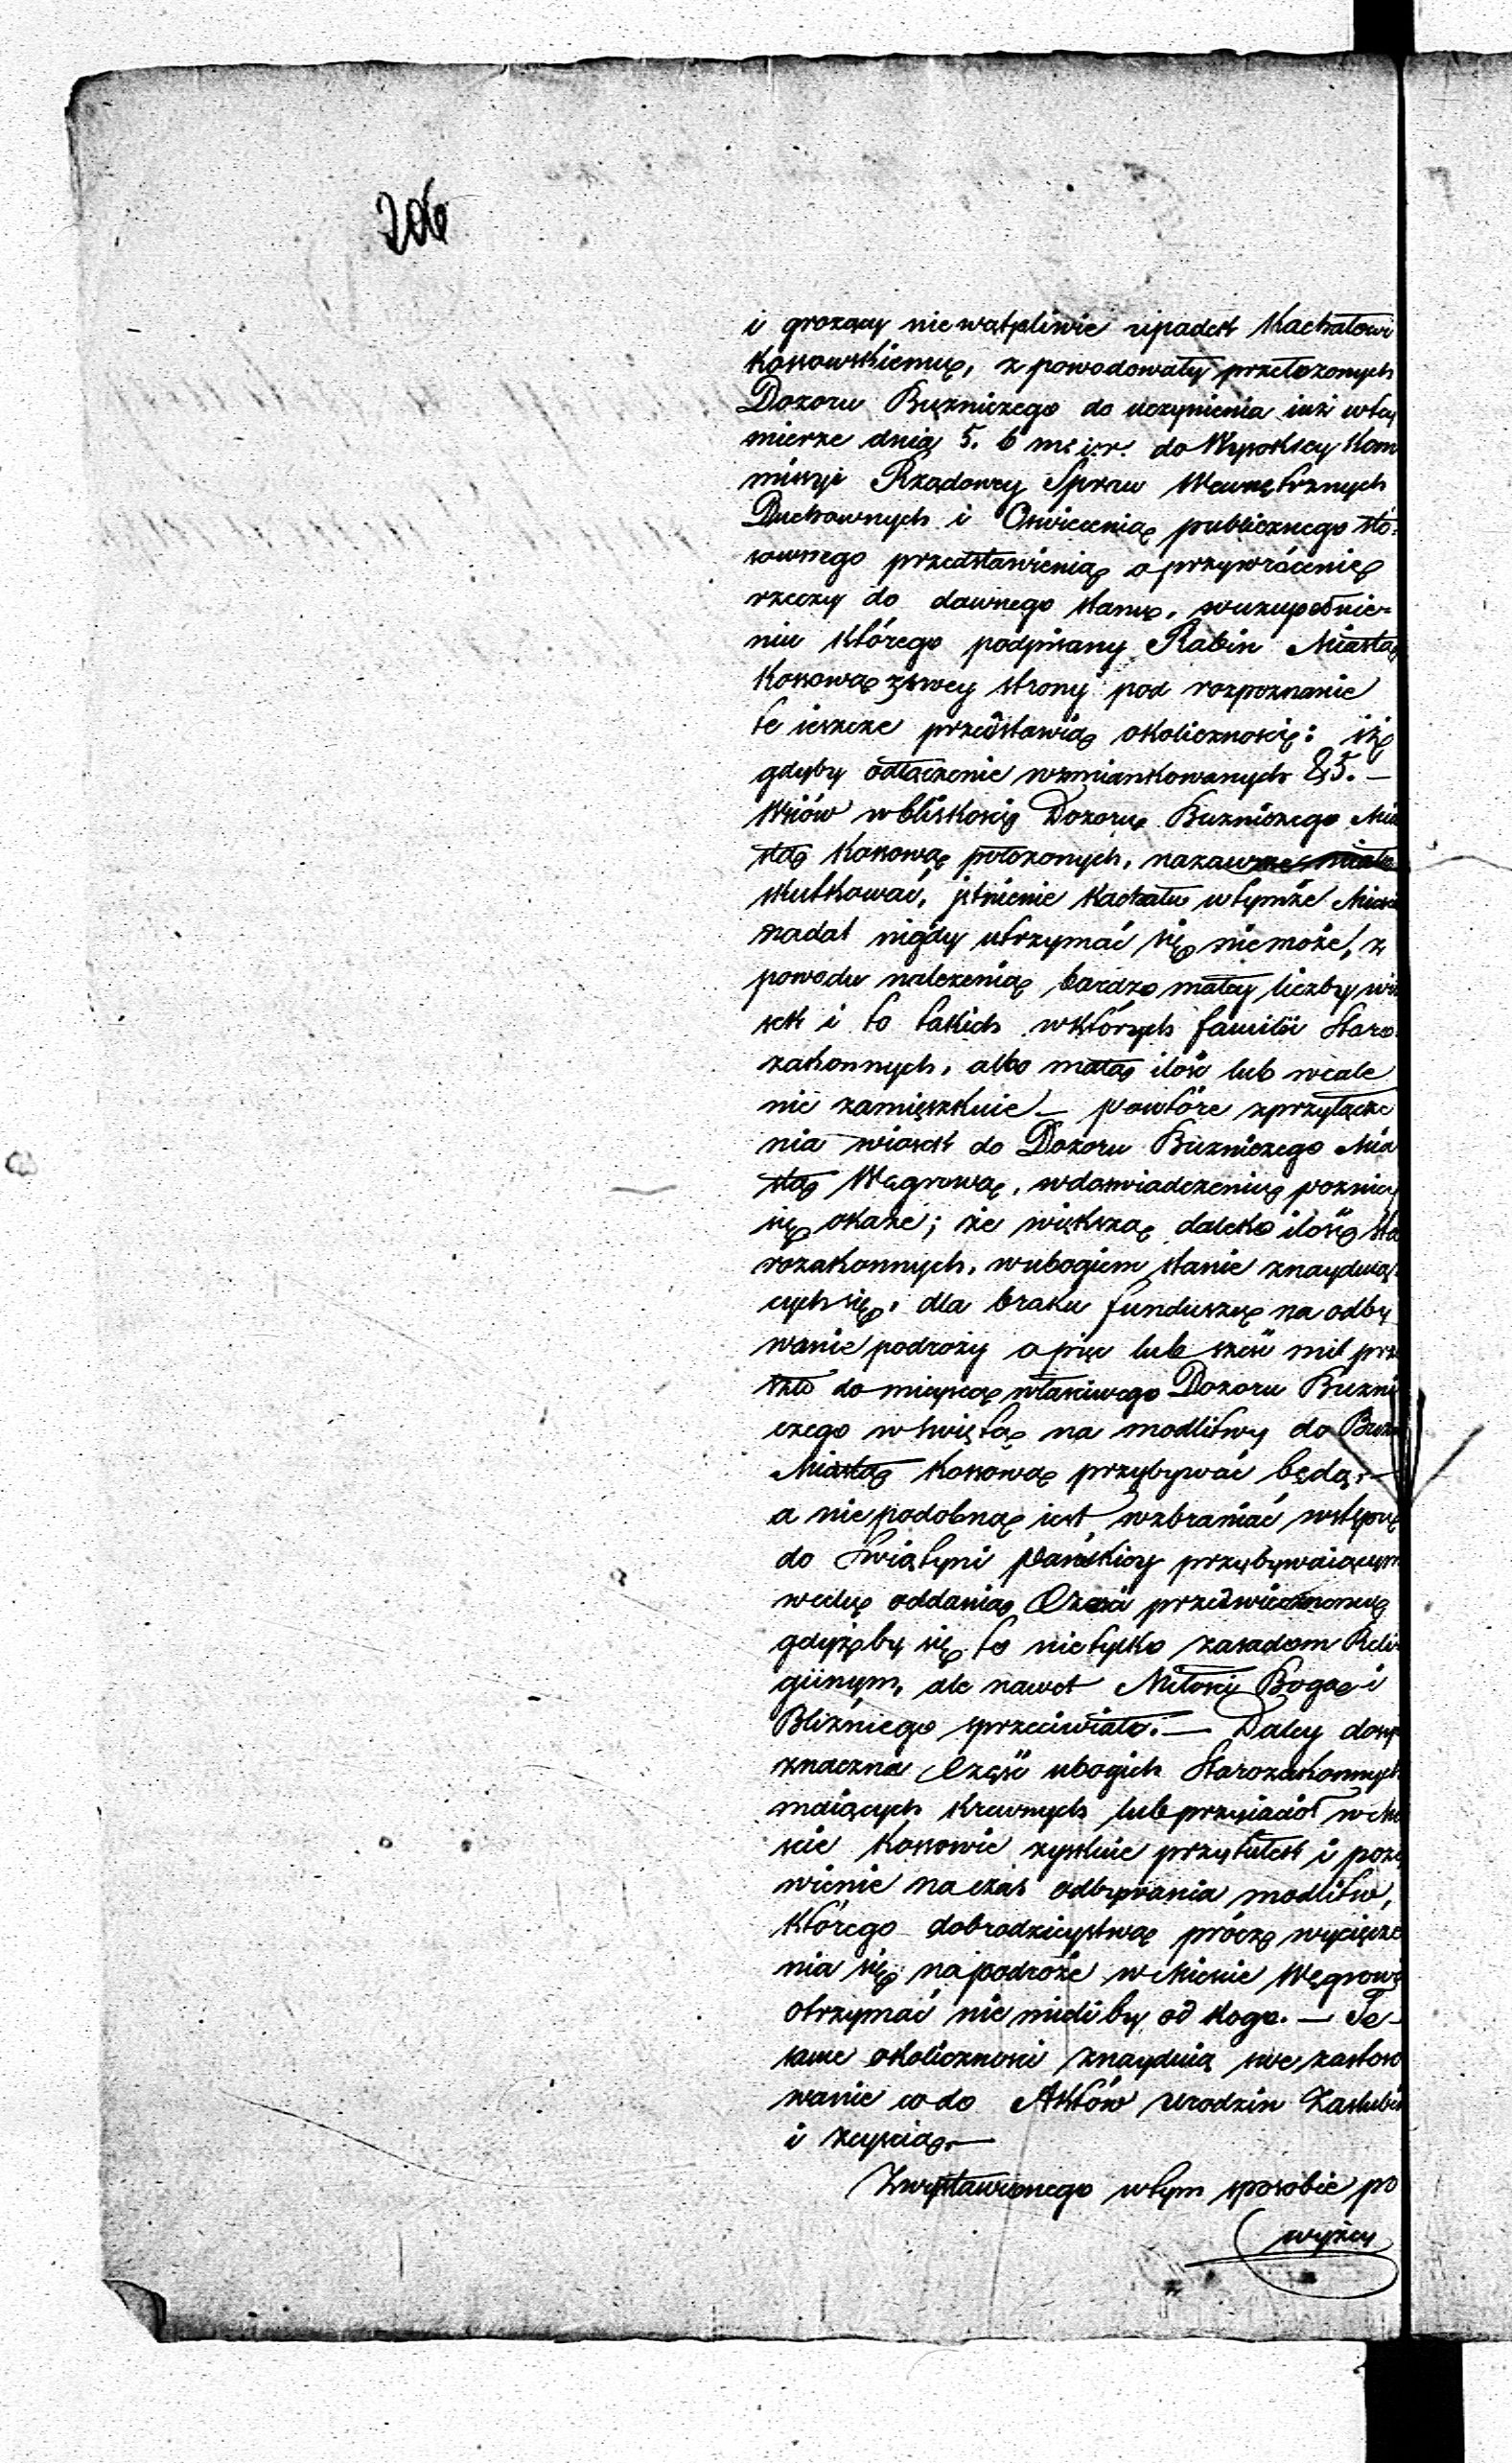 206
i grozący niewątpliwie upadek Kachałowi
Kossowskiemu, z powodowały przełożonych
Dozoru Buzniczego do uczynienia iuż wtey
mierze dnia 5. b m i r. do Wysokiey Kom
missyi Rządowey Spraw Wewnętrznych
Duchownych i Oswiecenia publicznego sto:
sownego przedstawienia o przywrócenie
rzeczy do dawnego stanu, wuzupełnie-
niu którego podpisany Rabin Miasta
Kossowa zswey strony pod rozpoznanie
te ieszcze przedstawia okolicznoscie: iż
gdyby odłączenie wzmiankowanych 85. —
Wsiów wbliskości Dozoru Buzniczego Mia
sta Kossowa położonych, nazawsze miało
skutkować, jstnienie Kachału wtymże Miescie
nadal nigdy utrzymać się niemoże, z
powodu należenia bardzo małey liczby wio
sek i to takich wktórych familii Staro
zakonnych, albo mała ilość lub wcale
nie zamięszkuie — powtóre zprzyłącze
nia wiosek do Dozoru Buzniczego Mia
sta Węgrowa, wdoswiadczeniu poznicy
się okaże; że większa daleko ilość Sta
rozakonnych, wubogiem stanie znayduią
cych się, dla braku funduszu na odby
wanie podroży o pięc lub szesć mil prze
szło do mieysca własciwego Dozoru Buzni
czego w swięta na modlitwy do Buzn
Miasta Kossowa przybywać będą, —
a niepodobna iest wzbraniać wstępu
do Swiątyni Pańskiey przybywaiącym
wcelu oddania Czci przedwiecznemu
gdyżby się to nietylko zasadom Reli
giinym, ale nawet Miłosci Boga i
Blizniego sprzeciwiało. — Daley dosyć
znaczna Część ubogich Starozakonnych
maiących krewnych lub przyiaciół w Mie
scie Kossowie zyskuie przytułek i poży
wienie na czas odbywania modlitw,
którego dobrodzieystwa prócz wycięcze
nia się na podróże w Miescie Węgrowie
otrzymać nie mieli by od kogo. — Te
same okolicznosci znayduią swe zastoso
wanie codo Aktów Urodzin Zaslubin
i zeyscia. —
Zwystawionego wtym sposobie po
wyżey